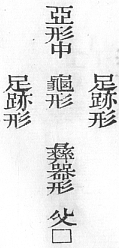 足跡形
亞形中 龜形 彝器形 父□
足跡形